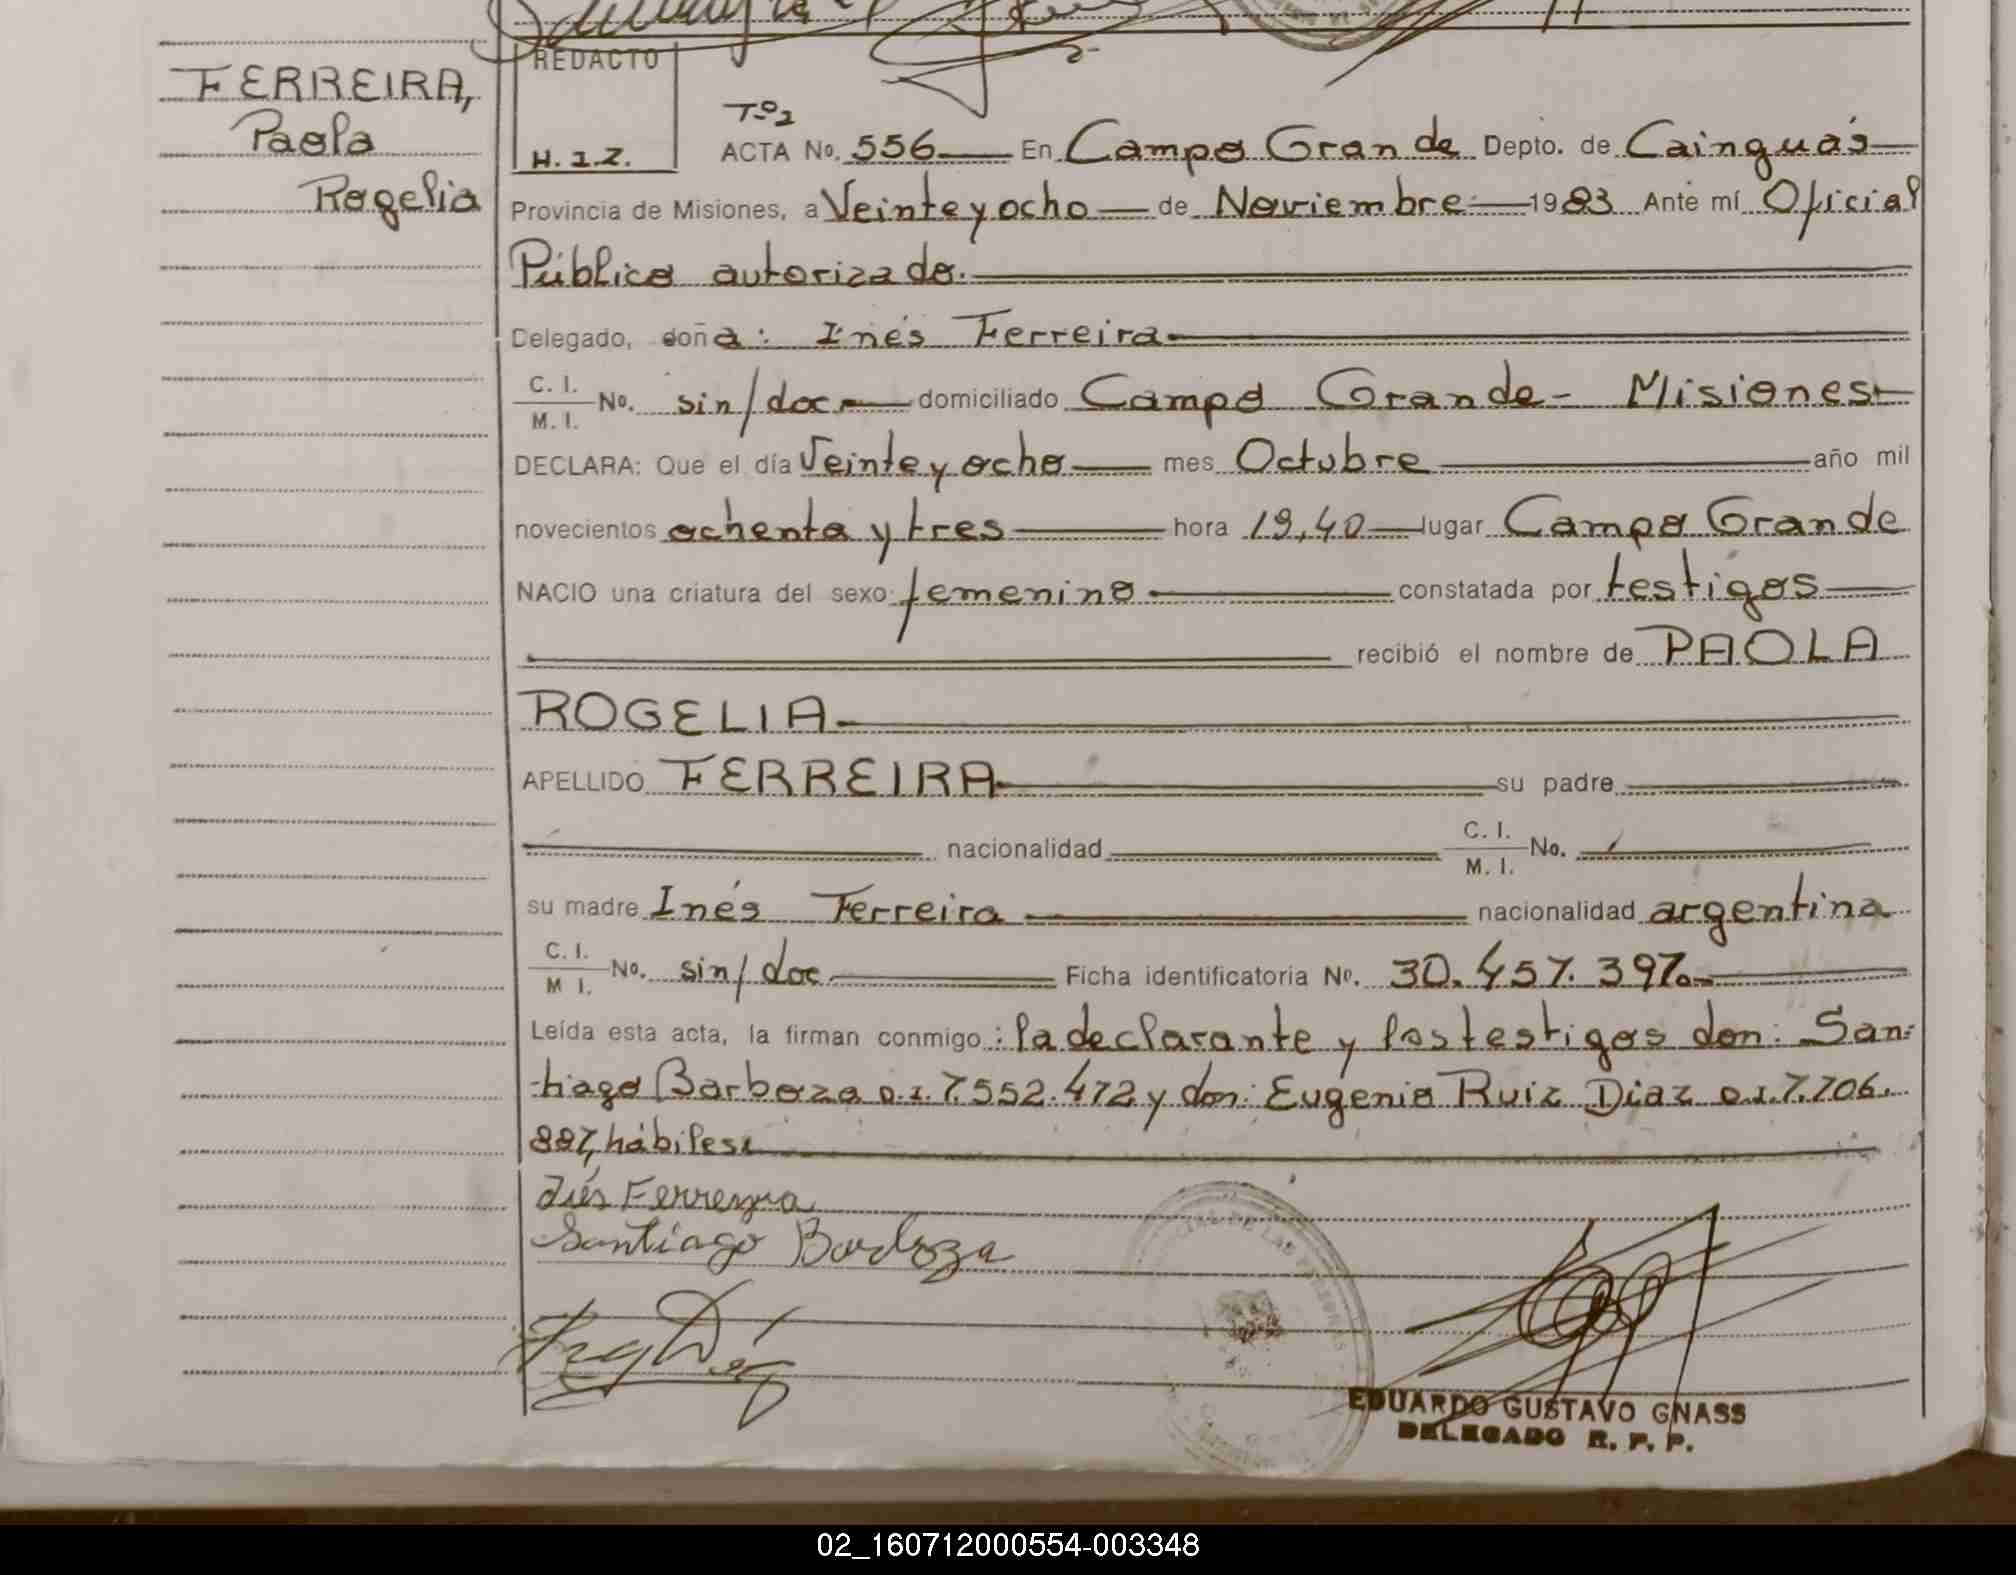 FERREIRA,
Paola
Rogelia
REDACTO
H.I.Z.
Tº2
ACTA No. 556 En Campo Grande Depto. de Cainguás
Provincia de Misiones, a Veinte y ocho de Noviembre 1983 Ante mí Oficial
Público autorizado.
Delegado, doña: Inés Ferreira
C. I.
M. I. No. sin/doc. domiciliado Campo Grande - Misiones
DECLARA: Que el día Veinte y ocho mes Octubre año mil
novecientos ochenta y tres hora 19,40 lugar Campo Grande
NACIO una criatura del sexo femenino constatada por testigos
recibió el nombre de PAOLA
ROGELIA
APELLIDO FERREIRA su padre
nacionalidad C. I.
M. I. No.
su madre Inés Ferreira nacionalidad argentina
C. I.
M I. No. sin/doc Ficha identificatoria No. 30.457.397.
Leída esta acta, la firman conmigo: la declarante y los testigos don: San-
tiago Barboza D.I. 7.552.472 y don: Eugenio Ruiz Diaz D.I. 7.706.
887, hábiles.
Inés Ferreyra
Santiago Bardoza
EDUARDO GUSTAVO GNASS
DELEGADO R. P. P.
02_160712000554-003348